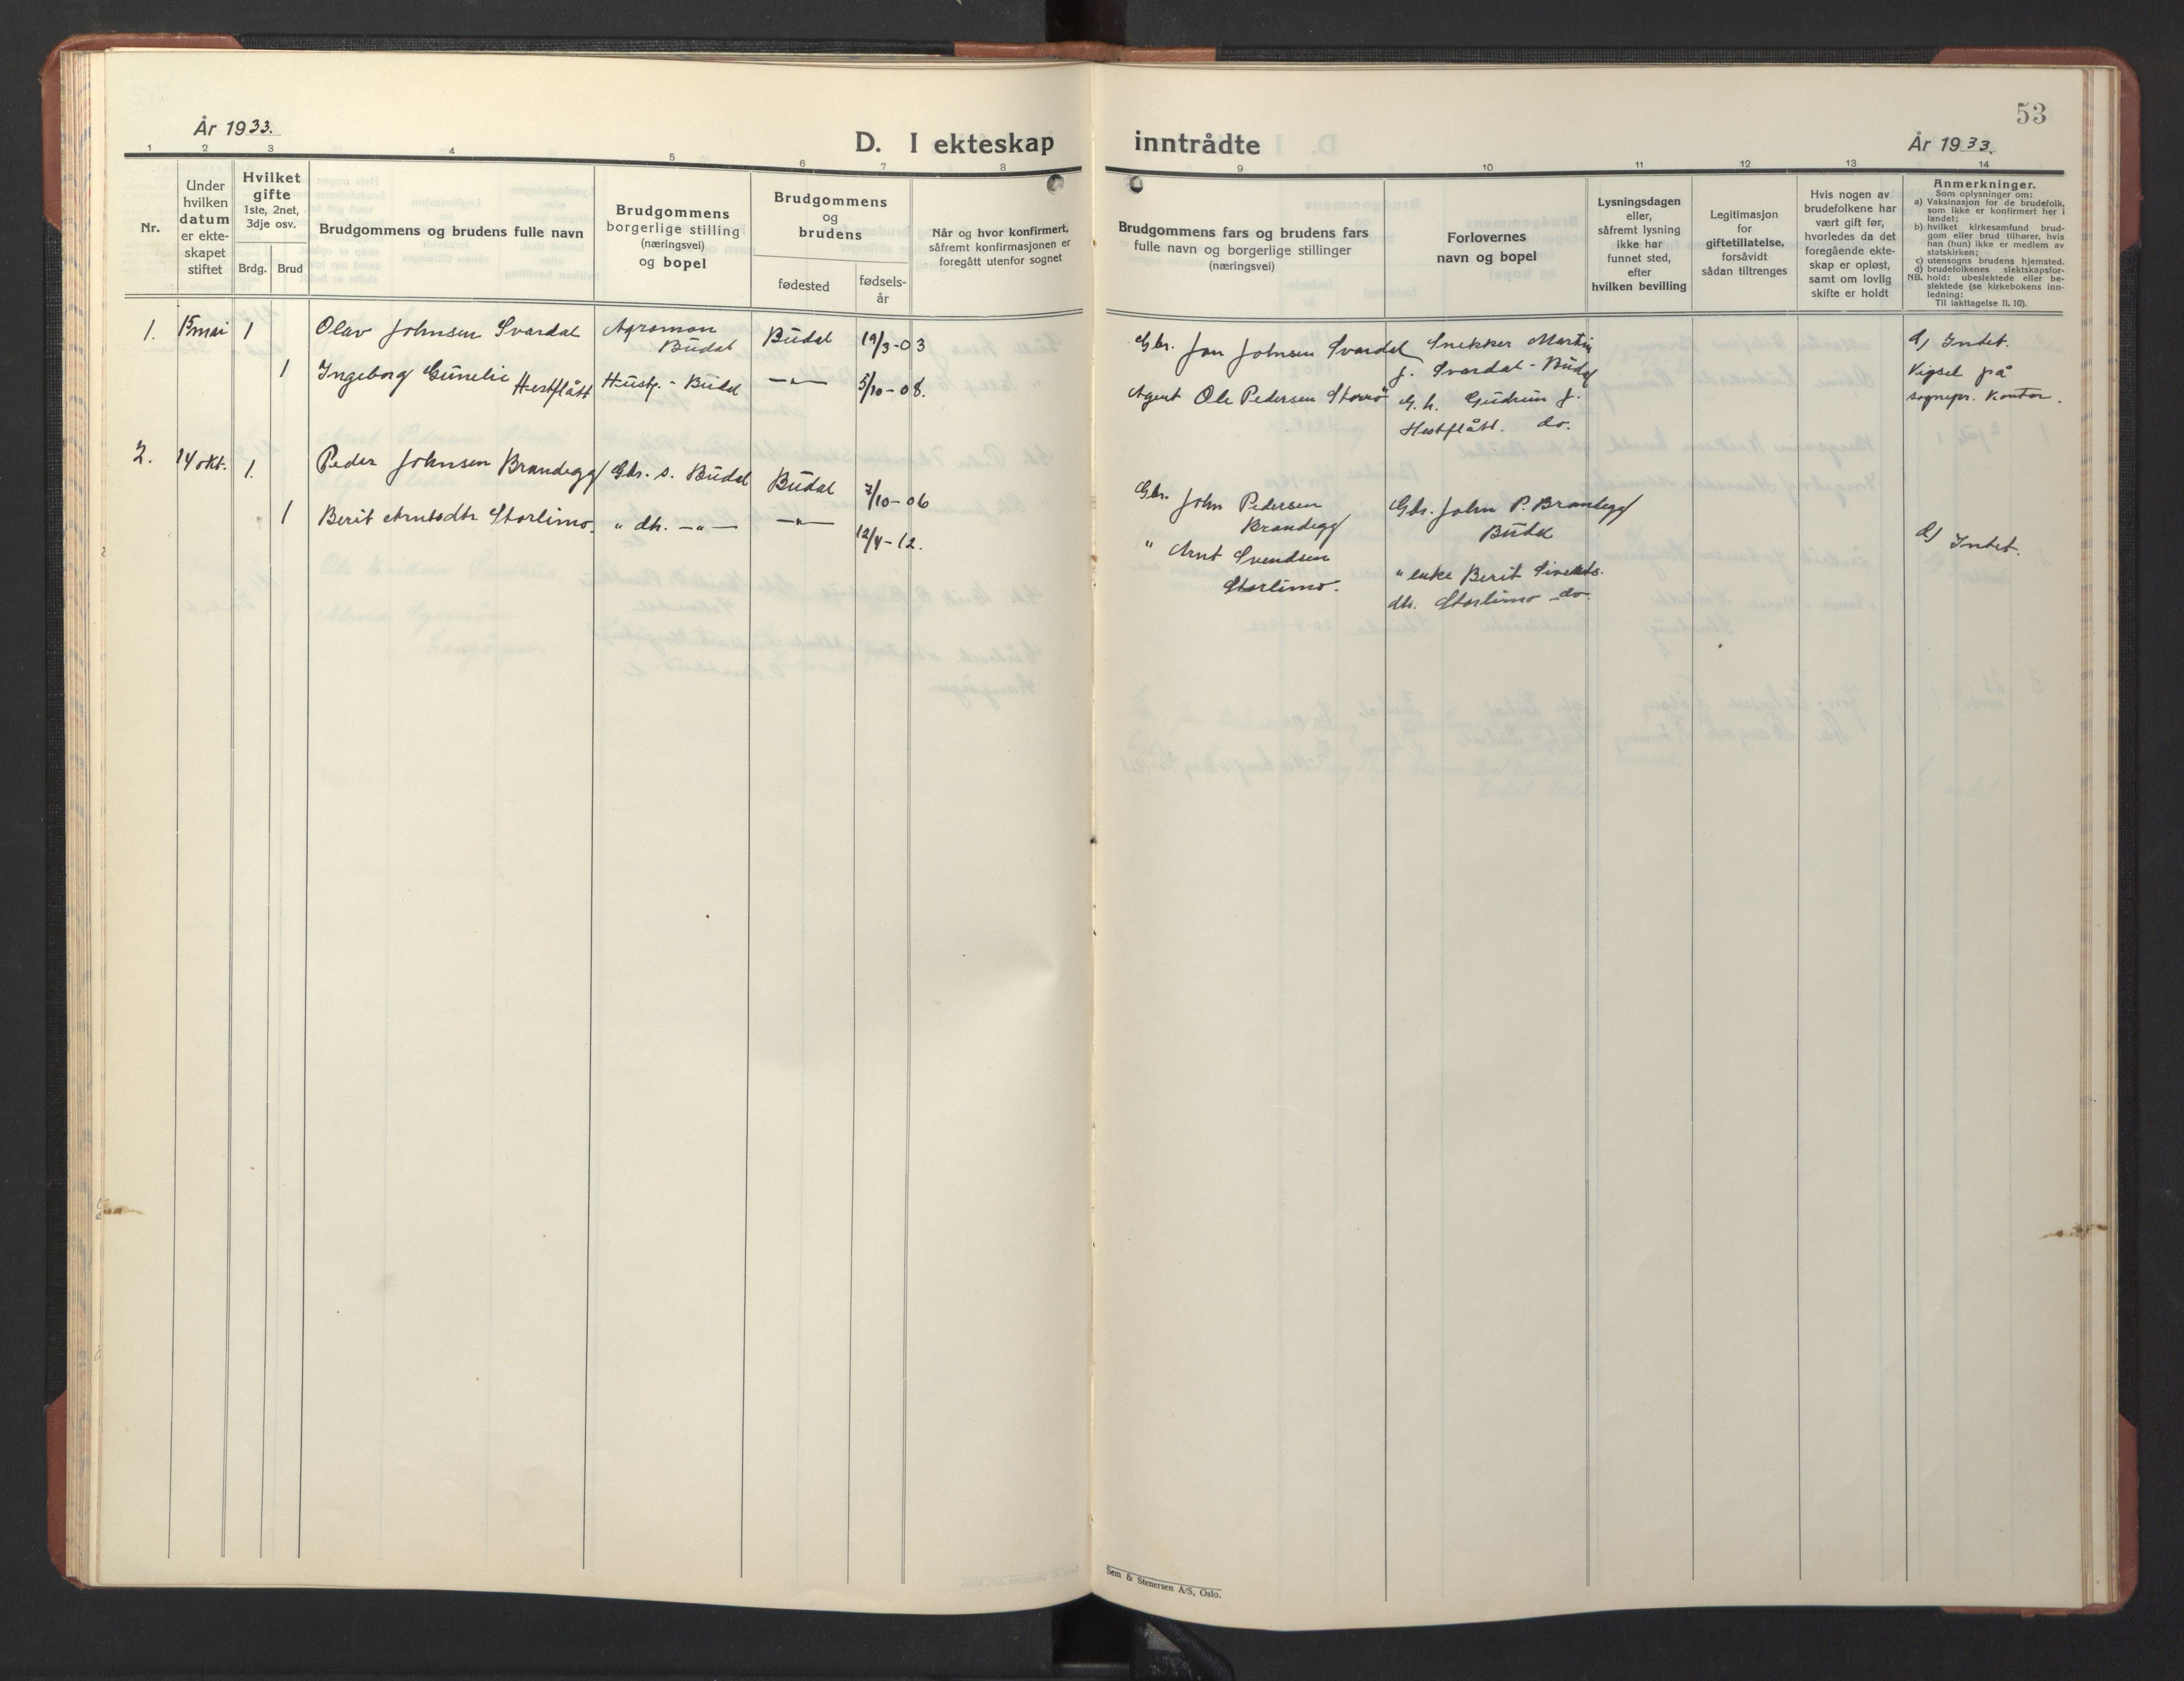 53
År 1933.
D. I ekteskap inntrådte
År 1933.
1 2 3 4 5 6 7 8 9 10 11 12 13 14
Nr.
Under
hvilken
datum
er ekte-
skapet
stiftet
Hvilket
gifte
1ste, 2net,
3dje osv.
Brdg. Brud
Brudgommens og brudens fulle navn
Brudgommens
borgerlige stilling
(næringsvei)
og bopel
Brudgommens
og
brudens
fødested
fødsels-
år
Når og hvor konfirmert,
såfremt konfirmasjonen er
foregått utenfor sognet
Brudgommens fars og brudens fars
fulle navn og borgerlige stillinger
(næringsvei)
Forlovernes
navn og bopel
Lysningsdagen
eller,
såfremt lysning
ikke har
funnet sted,
efter
hvilken bevilling
Legitimasjon
for
giftetillatelse,
forsåvidt
sådan tiltrenges
Hvis nogen av
brudefolkene har
vært gift før,
hvorledes da det
foregående ekte-
skap er opløst,
samt om lovlig
skifte er holdt
Anmerkninger.
Som oplysninger om:
a) Vaksinasjon for de brudefolk,
som ikke er konfirmert her i
landet;
b) hvilket kirkesamfund brud-
gom eller brud tilhører, hvis
han (hun) ikke er medlem av
statskirken;
c) utensogns brudens hjemsted.
d) brudefolkenes slektskapsfor-
NB. hold: ubeslektede eller be-
slektede (se kirkebokens inn-
ledning:
Til iakttagelse II. 10).
1. 15 mai 1 Olav Johnsen Svardal
Agronom
Budal
Budal 19/3-03
Gbr. Jon Johnsen Svardal
Snekker Martin
J. Svardal - Budal
d) Intet.
Vigsel på
sognepr. kontor.
1 Ingeborg Gunelie
Hestflått
Hustj. - Budal
—"— 5/10-08.
Agent Ole Pedersen Storrø
G. h. Gudrun J.
Hestflått. do.
2. 14 okt. 1. Peder Johnsen Brandegg
Gbr. s. Budal
Budal 7/10-06
Gbr. John Pedersen
Brandegg
Gbr. John P. Brandegg
Budal
d) Intet.
1 Berit Arntsdtr. Storlimo.
" dtr. —"—
—"— 12/4-12.
" Arnt Svendsen
Storlimo.
" enke Berit Siverts-
dtr. Storlimo do.
Sem & Stenersen A/S, Oslo.